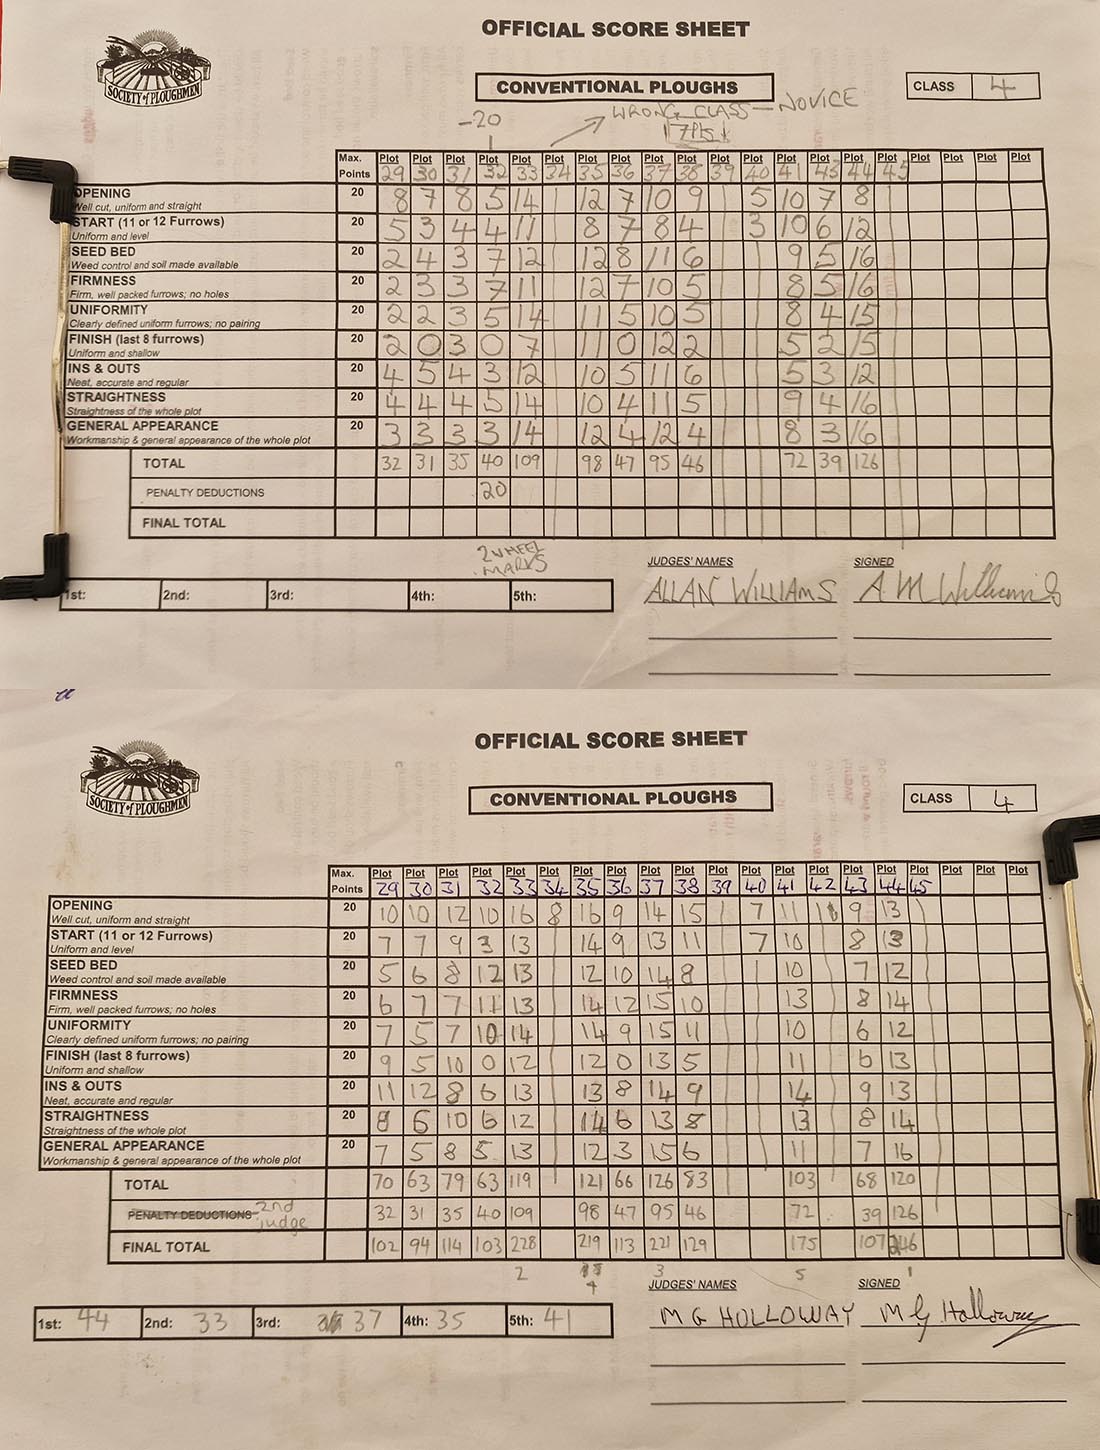 OFFICIAL SCORE SHEET
SOCIETY of PLOUGHMEN
CONVENTIONAL PLOUGHS
CLASS 4
-20
WRONG CLASS — NOVICE
17Pts
Max. Points Plot 29 Plot 30 Plot 31 Plot 32 Plot 33 Plot 34 Plot 35 Plot 36 Plot 37 Plot 38 Plot 39 Plot 40 Plot 41 Plot 43 Plot 44 Plot 45 Plot Plot Plot Plot
OPENING 20 8 7 8 5 14 12 7 10 9 5 10 7 8
Well cut, uniform and straight
START (11 or 12 Furrows) 20 5 3 4 4 11 8 7 8 4 3 10 6 12
Uniform and level
SEED BED 20 2 4 3 7 12 12 8 11 6 9 5 16
Weed control and soil made available
FIRMNESS 20 2 3 3 7 11 12 7 10 5 8 5 16
Firm, well packed furrows; no holes
UNIFORMITY 20 2 2 3 5 14 11 5 10 5 8 4 15
Clearly defined uniform furrows; no pairing
FINISH (last 8 furrows) 20 2 0 3 0 7 11 0 12 2 5 2 15
Uniform and shallow
INS & OUTS 20 4 5 4 3 12 10 5 11 6 5 3 12
Neat, accurate and regular
STRAIGHTNESS 20 4 4 4 5 14 10 4 11 5 9 4 16
Straightness of the whole plot
GENERAL APPEARANCE 20 3 3 3 3 14 12 4 12 4 8 3 16
Workmanship & general appearance of the whole plot
TOTAL 32 31 35 40 109 98 47 95 46 72 39 126
PENALTY DEDUCTIONS 20
FINAL TOTAL
2 WHEEL
MARKS
JUDGES' NAMES SIGNED
1st: 2nd: 3rd: 4th: 5th:
ALLAN WILLIAMS A M Williams
OFFICIAL SCORE SHEET
SOCIETY of PLOUGHMEN
CONVENTIONAL PLOUGHS
CLASS 4
Max. Points Plot 29 Plot 30 Plot 31 Plot 32 Plot 33 Plot 34 Plot 35 Plot 36 Plot 37 Plot 38 Plot 39 Plot 40 Plot 41 Plot 42 Plot 43 Plot 44 Plot 45 Plot Plot Plot
OPENING 20 10 10 12 10 16 8 16 9 14 15 7 11 9 13
Well cut, uniform and straight
START (11 or 12 Furrows) 20 7 7 9 3 13 14 9 13 11 7 10 8 13
Uniform and level
SEED BED 20 5 6 8 12 13 12 10 14 8 10 7 12
Weed control and soil made available
FIRMNESS 20 6 7 7 11 13 14 12 15 10 13 8 14
Firm, well packed furrows; no holes
UNIFORMITY 20 7 5 7 10 14 14 9 15 11 10 6 12
Clearly defined uniform furrows; no pairing
FINISH (last 8 furrows) 20 9 5 10 0 12 12 0 13 5 11 6 13
Uniform and shallow
INS & OUTS 20 11 12 8 6 13 13 8 14 9 14 9 13
Neat, accurate and regular
STRAIGHTNESS 20 8 6 10 6 12 14 6 13 8 13 8 14
Straightness of the whole plot
GENERAL APPEARANCE 20 7 5 8 5 13 12 3 15 6 11 7 16
Workmanship & general appearance of the whole plot
TOTAL 70 63 79 63 119 121 66 126 83 103 68 120
PENALTY DEDUCTIONS 2nd judge 32 31 35 40 109 98 47 95 46 72 39 126
FINAL TOTAL 102 94 114 103 228 219 113 221 129 175 107 246
2 4 3 5 1
JUDGES' NAMES SIGNED
1st: 44 2nd: 33 3rd: 37 4th: 35 5th: 41
M G HOLLOWAY M G Holloway